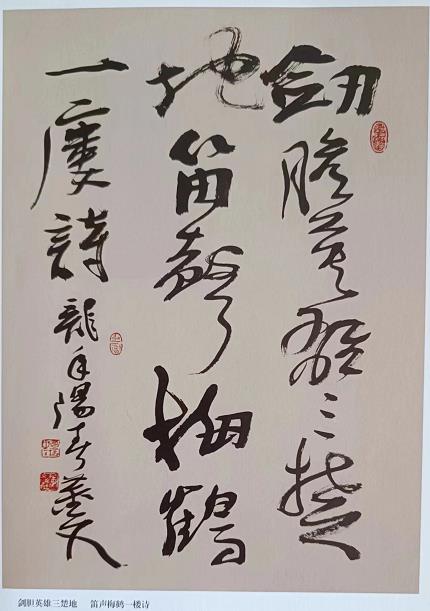 劒膽英雄三楚
地笛聲梅鶴
一廔詩
龍年陽春
剑胆英雄三楚地 笛声梅鹤一楼诗